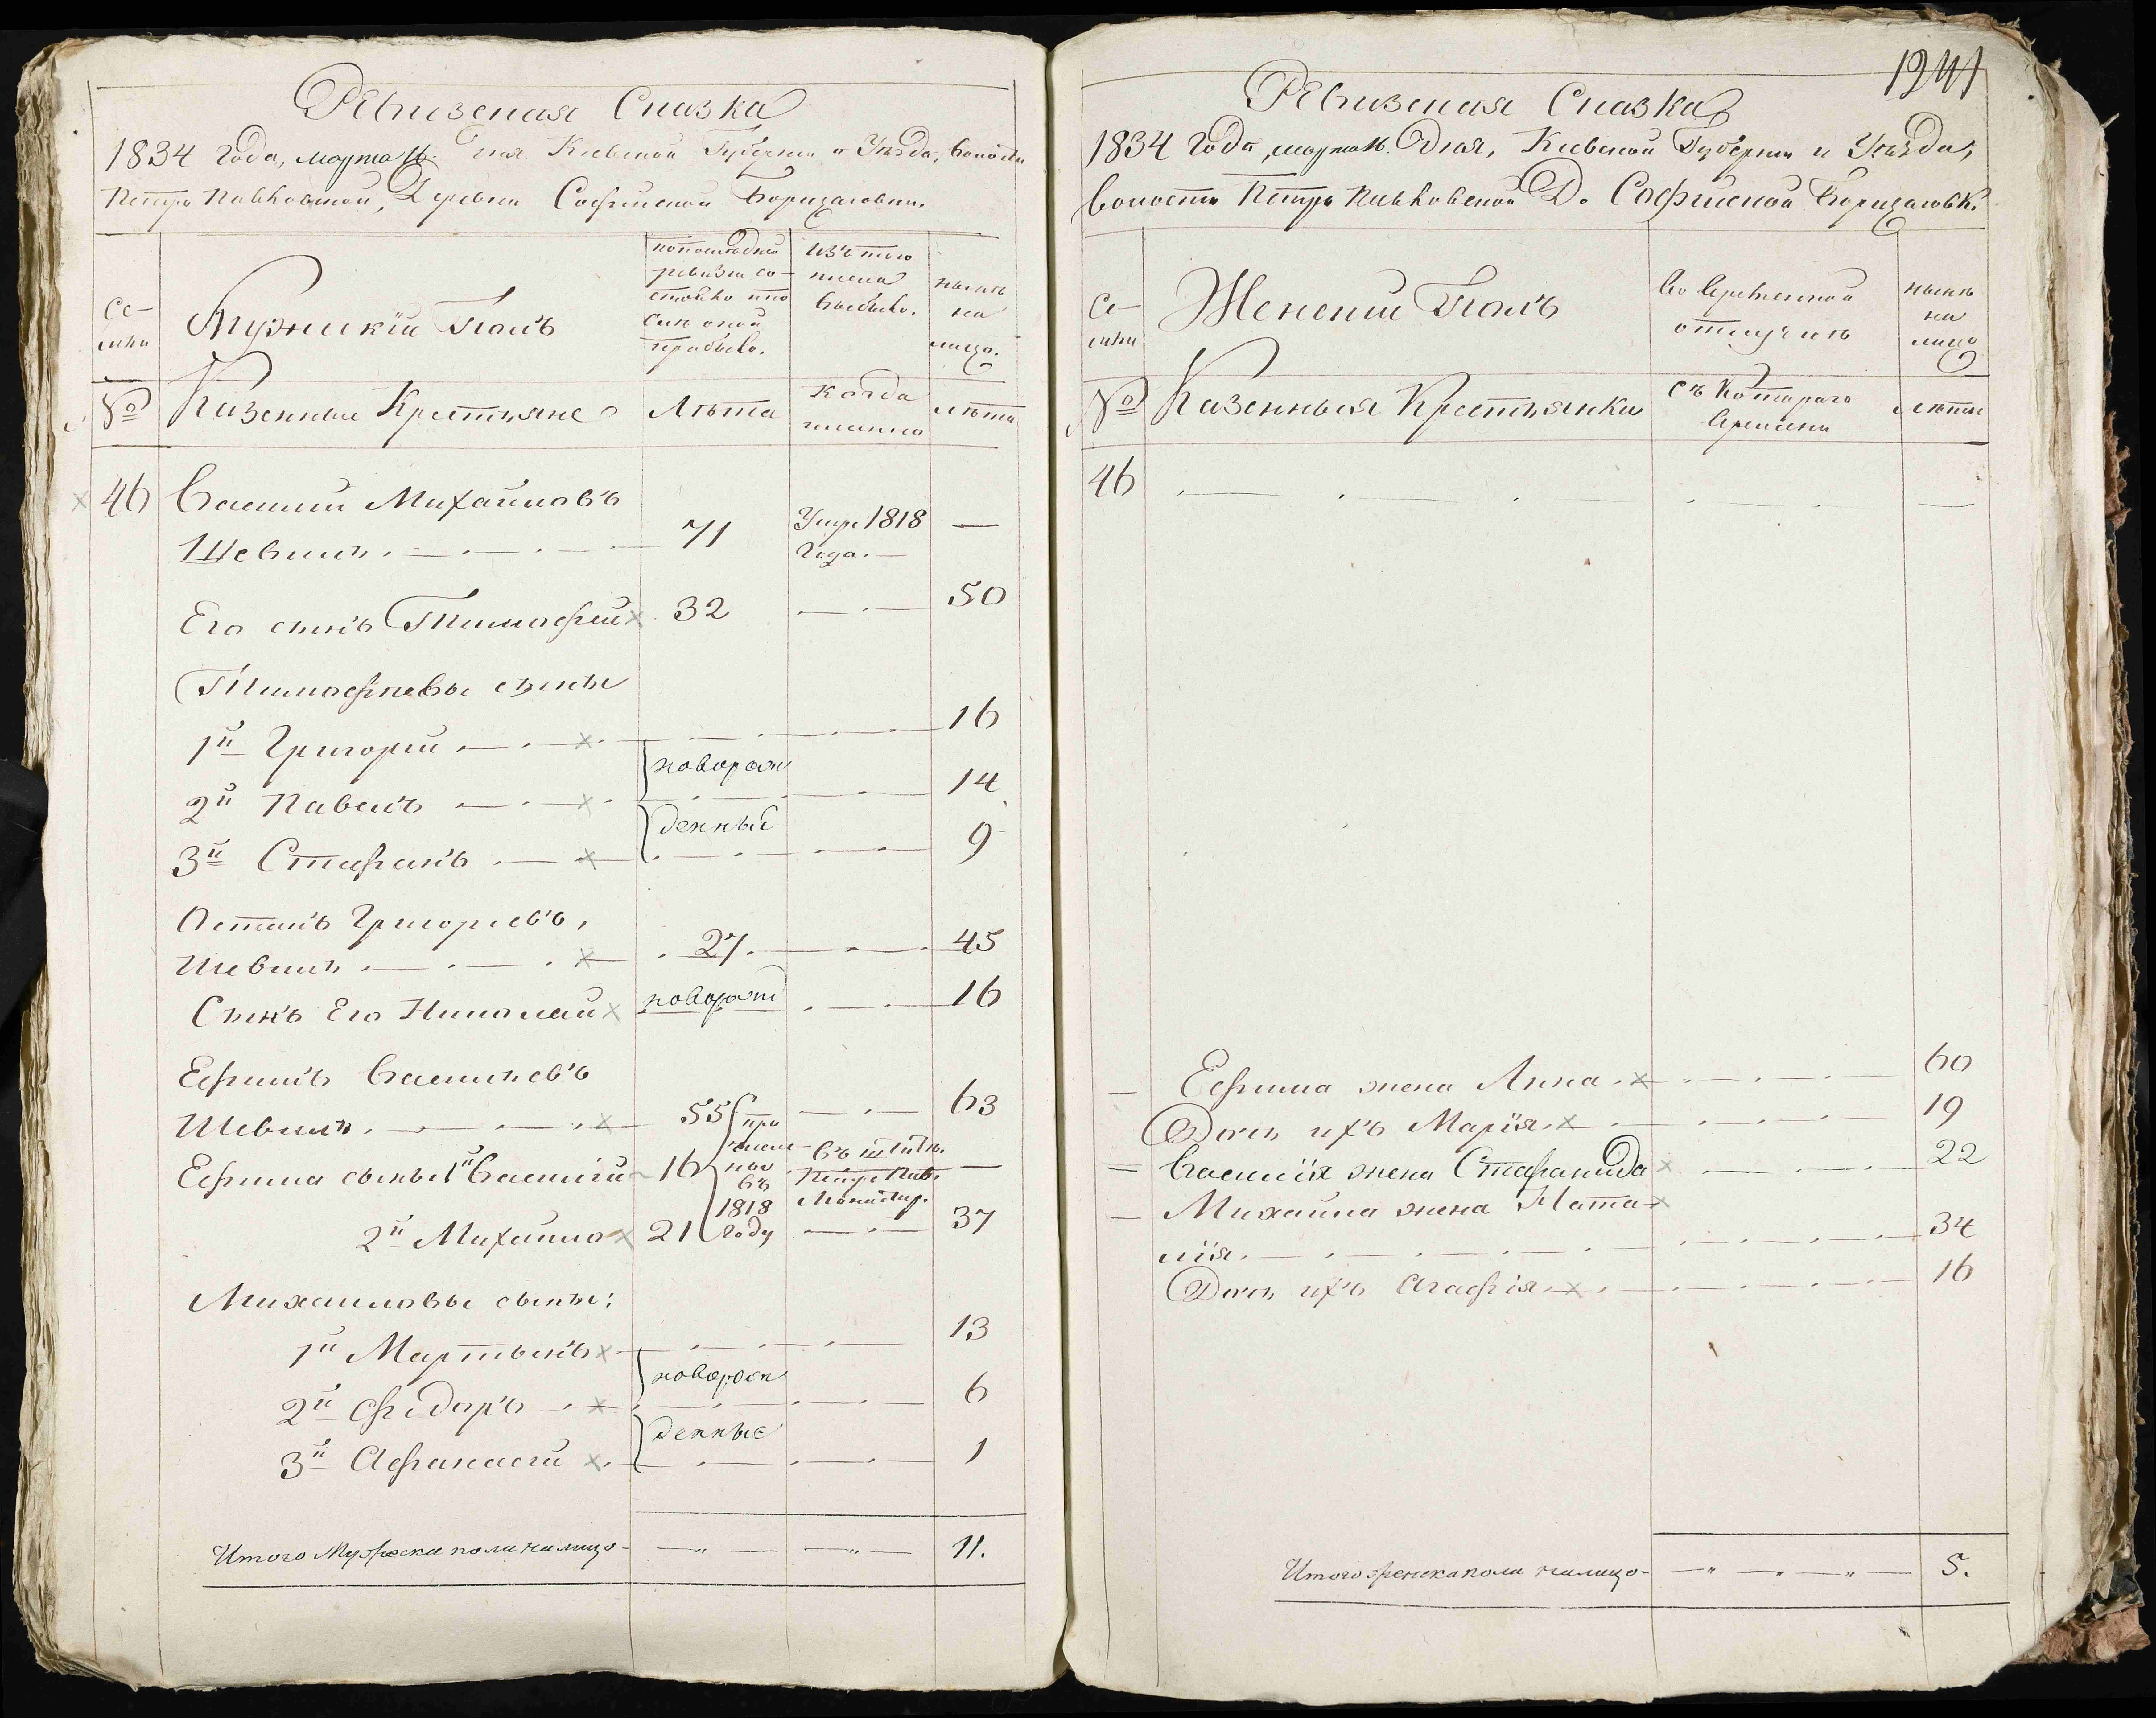 Ревизская Сказка
1834 года, марта 16. дня Киевской Губернии и Уезда, Волости
Петро Павловской, Деревни Софийской Борщаговки.
Се-
мьи
Мужескій Полъ
по последней
ревизіи со-
стояло и по
сле оной
прибыло.
Изъ того
числа
выбыло.
ныне
на
лицо.
№
Казенные Крестьяне
Лѣта
Когда
именно
лѣта
46
Василий Михайловъ
Шевчикъ
71
Умре 1818
Года.
—
Его сынъ Тимофей
32
50
Тимофѣевы сыны
1й Григорий
16
новорож
2й Павелъ
14
денный
3й Стефанъ
9
Остапъ Григорьевъ,
Шевчикъ
27.
45
Сынъ Его Николай
новорож
16
Ефимъ Васильевъ
Шевчикъ
55
при
63
числе
Ефима сыны 1й Василій
16
ны
въ
въ штатъ
Петро Пав.
Монастыр.
—
1818
2й Михайло
21
году
37
Михайловы сыны:
1й Мартынъ
13
новорож
2й Федоръ
6
денные
3й Афанасий
1
Итого Мужеска пола на лицо
11.
1241
Ревизская Сказка
1834 Года, марта 16. Дня, Киевской Губернии и Уезда,
Волости Петро Павловской Д. Софийской Борщаговк.
Се-
мьи
Женский Полъ
Во Временной
отлучкѣ
ныне
на
лицо
№
Казенныя Крестьянки
съ Котораго
Времени
лѣта
46
Ефима жена Анна
60
Дочь ихъ Марія
19
Василія жена Стефанида
22
Михаила жена Ната-
лія.
34
Дочь ихъ Агафія
16
Итого женска пола на лицо
5.